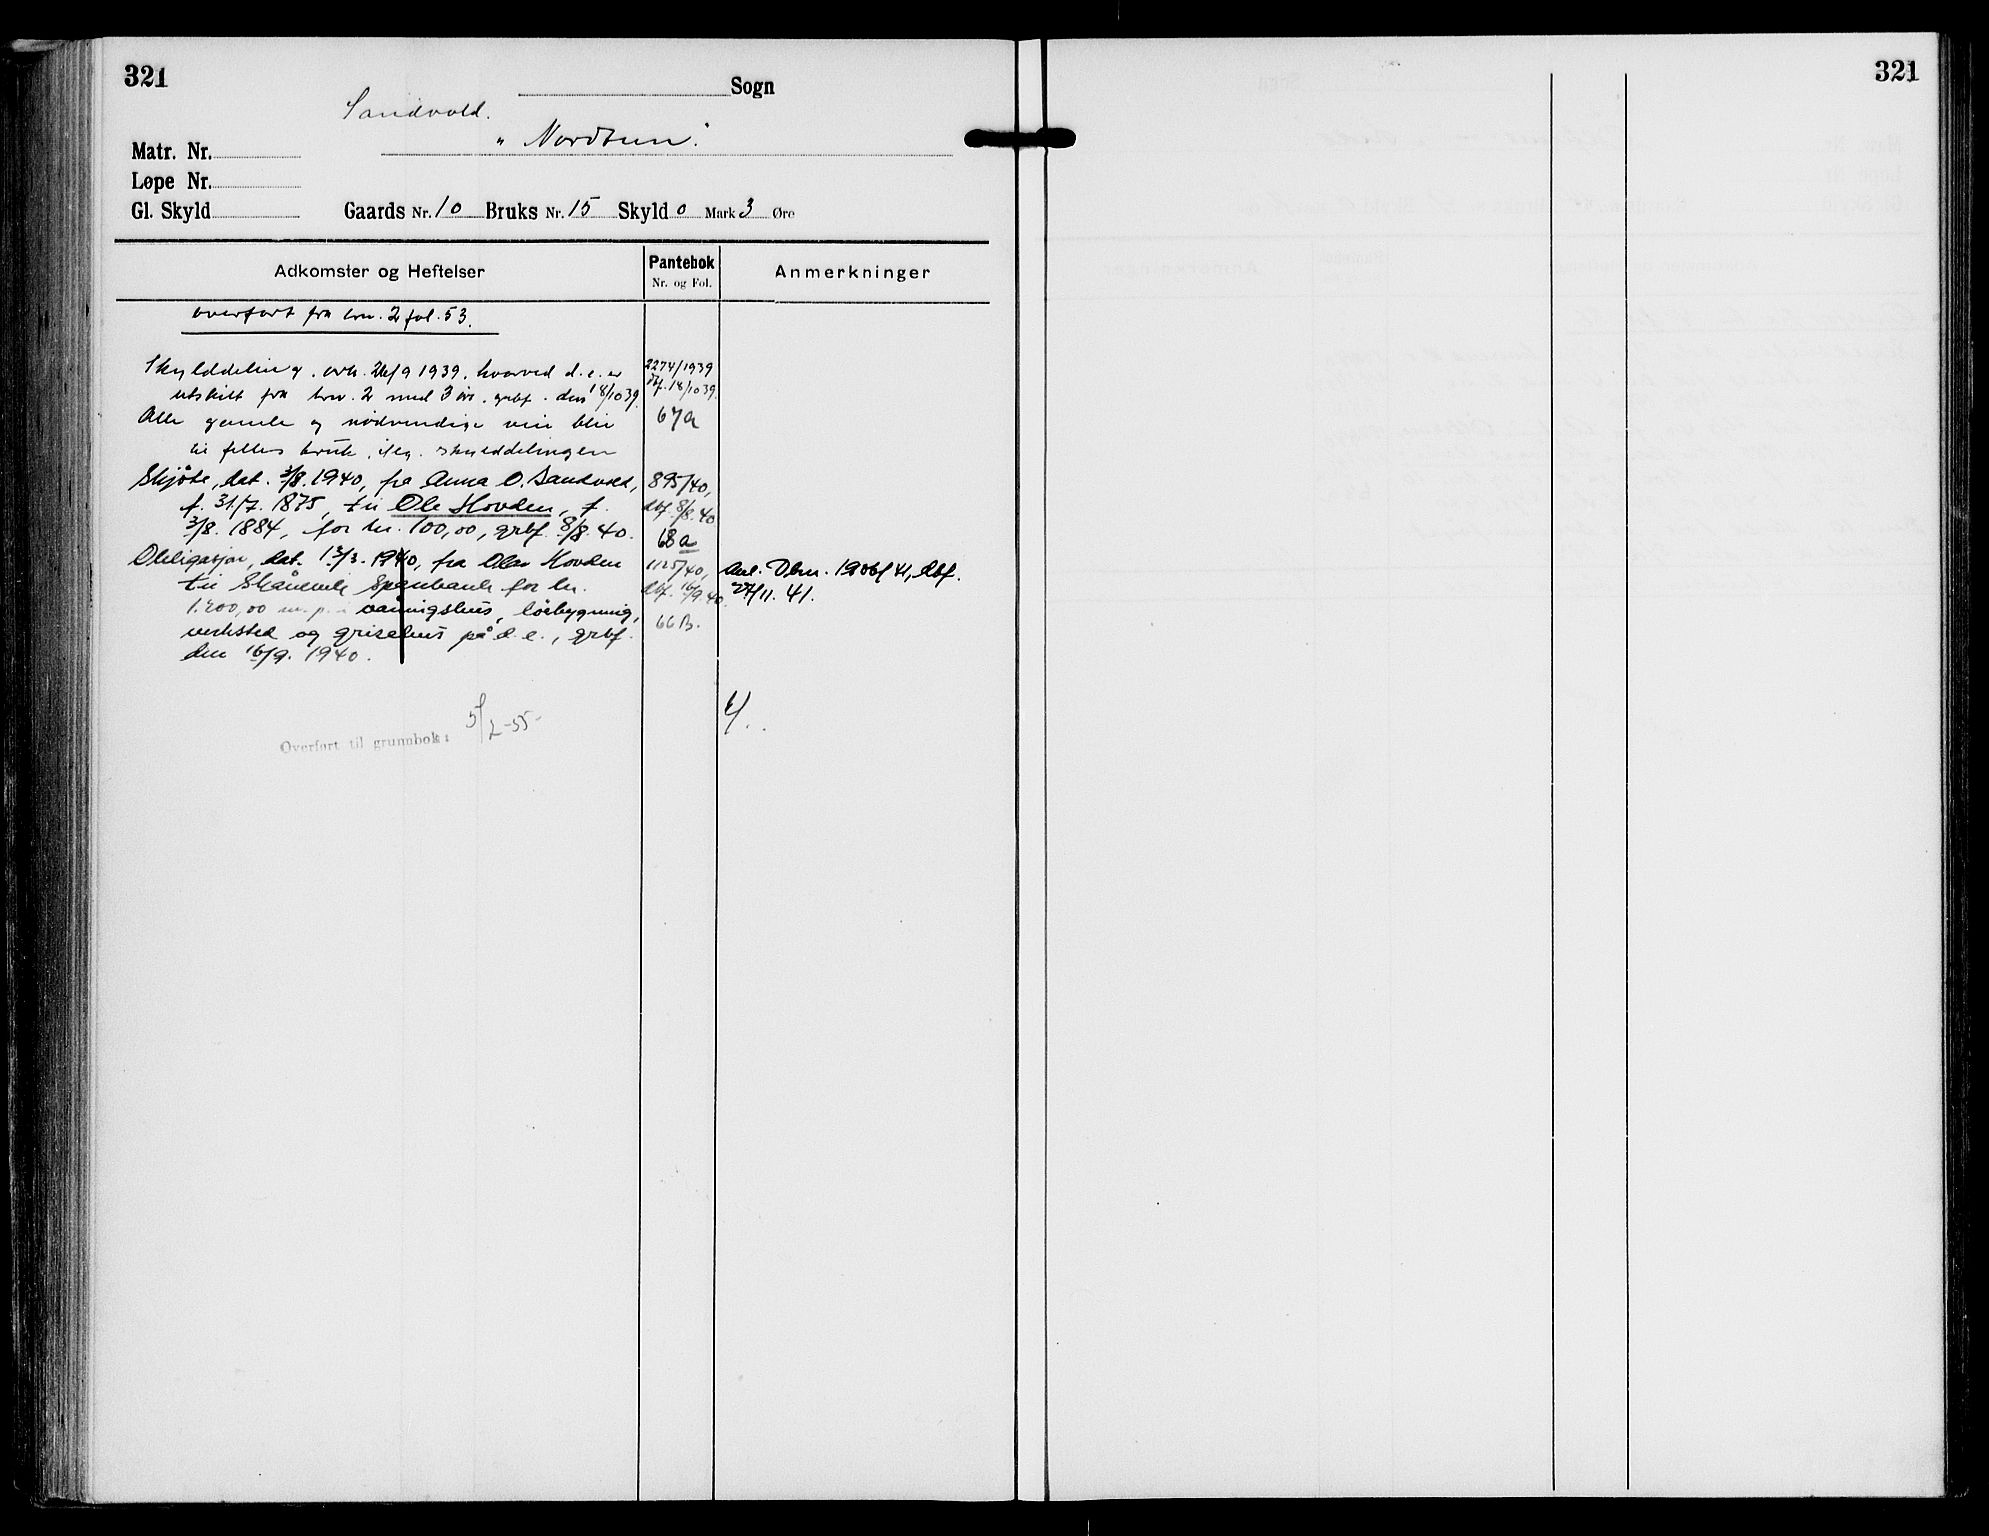 321
Sogn
Sandvold.
Matr. Nr.
„ Nordtun".
Løpe Nr.
Gl. Skyld Gaards Nr. 10 Bruks Nr. 15 Skyld 0 Mark 3 Øre
Adkomster og Heftelser
Pantebok
Nr. og Fol.
Anmerkninger
overført fra brn. 2 fol. 53.
Skylddeling, avh. 26/9 1939, hvorved d. e. er
utskilt fra brn. 2 med 3 øre. grbf. den 18/10 39.
2274/1939
Dbf. 18/10 39.
67 a
Alle gamle og nødvendige veie blir
til felles bruk, ifølg. skylddelingen
Skjøte, dat. 3/8. 1940, fra Anna O. Sandvold,
f. 31/7. 1875, til Ole Hovden, f.
3/8. 1884, for kr. 100,00, grbf. 8/8. 40.
895/40,
dbf. 8/8. 40
68 a
Obligasjon, dat. 13/3. 1940, fra Olav Hovden
til Skånevik Sparebank for kr.
1.200,00 m. p. i våningshus, løebygning,
verksted og grisehus på d. e., grbf.
den 16/9. 1940.
1125/40,
dbf. 16/9 40.
66 B.
Avl. Dbnr. 1906/41, dbf.
27/11. 41.
Overført til grunnbok: 5/2-55-
321